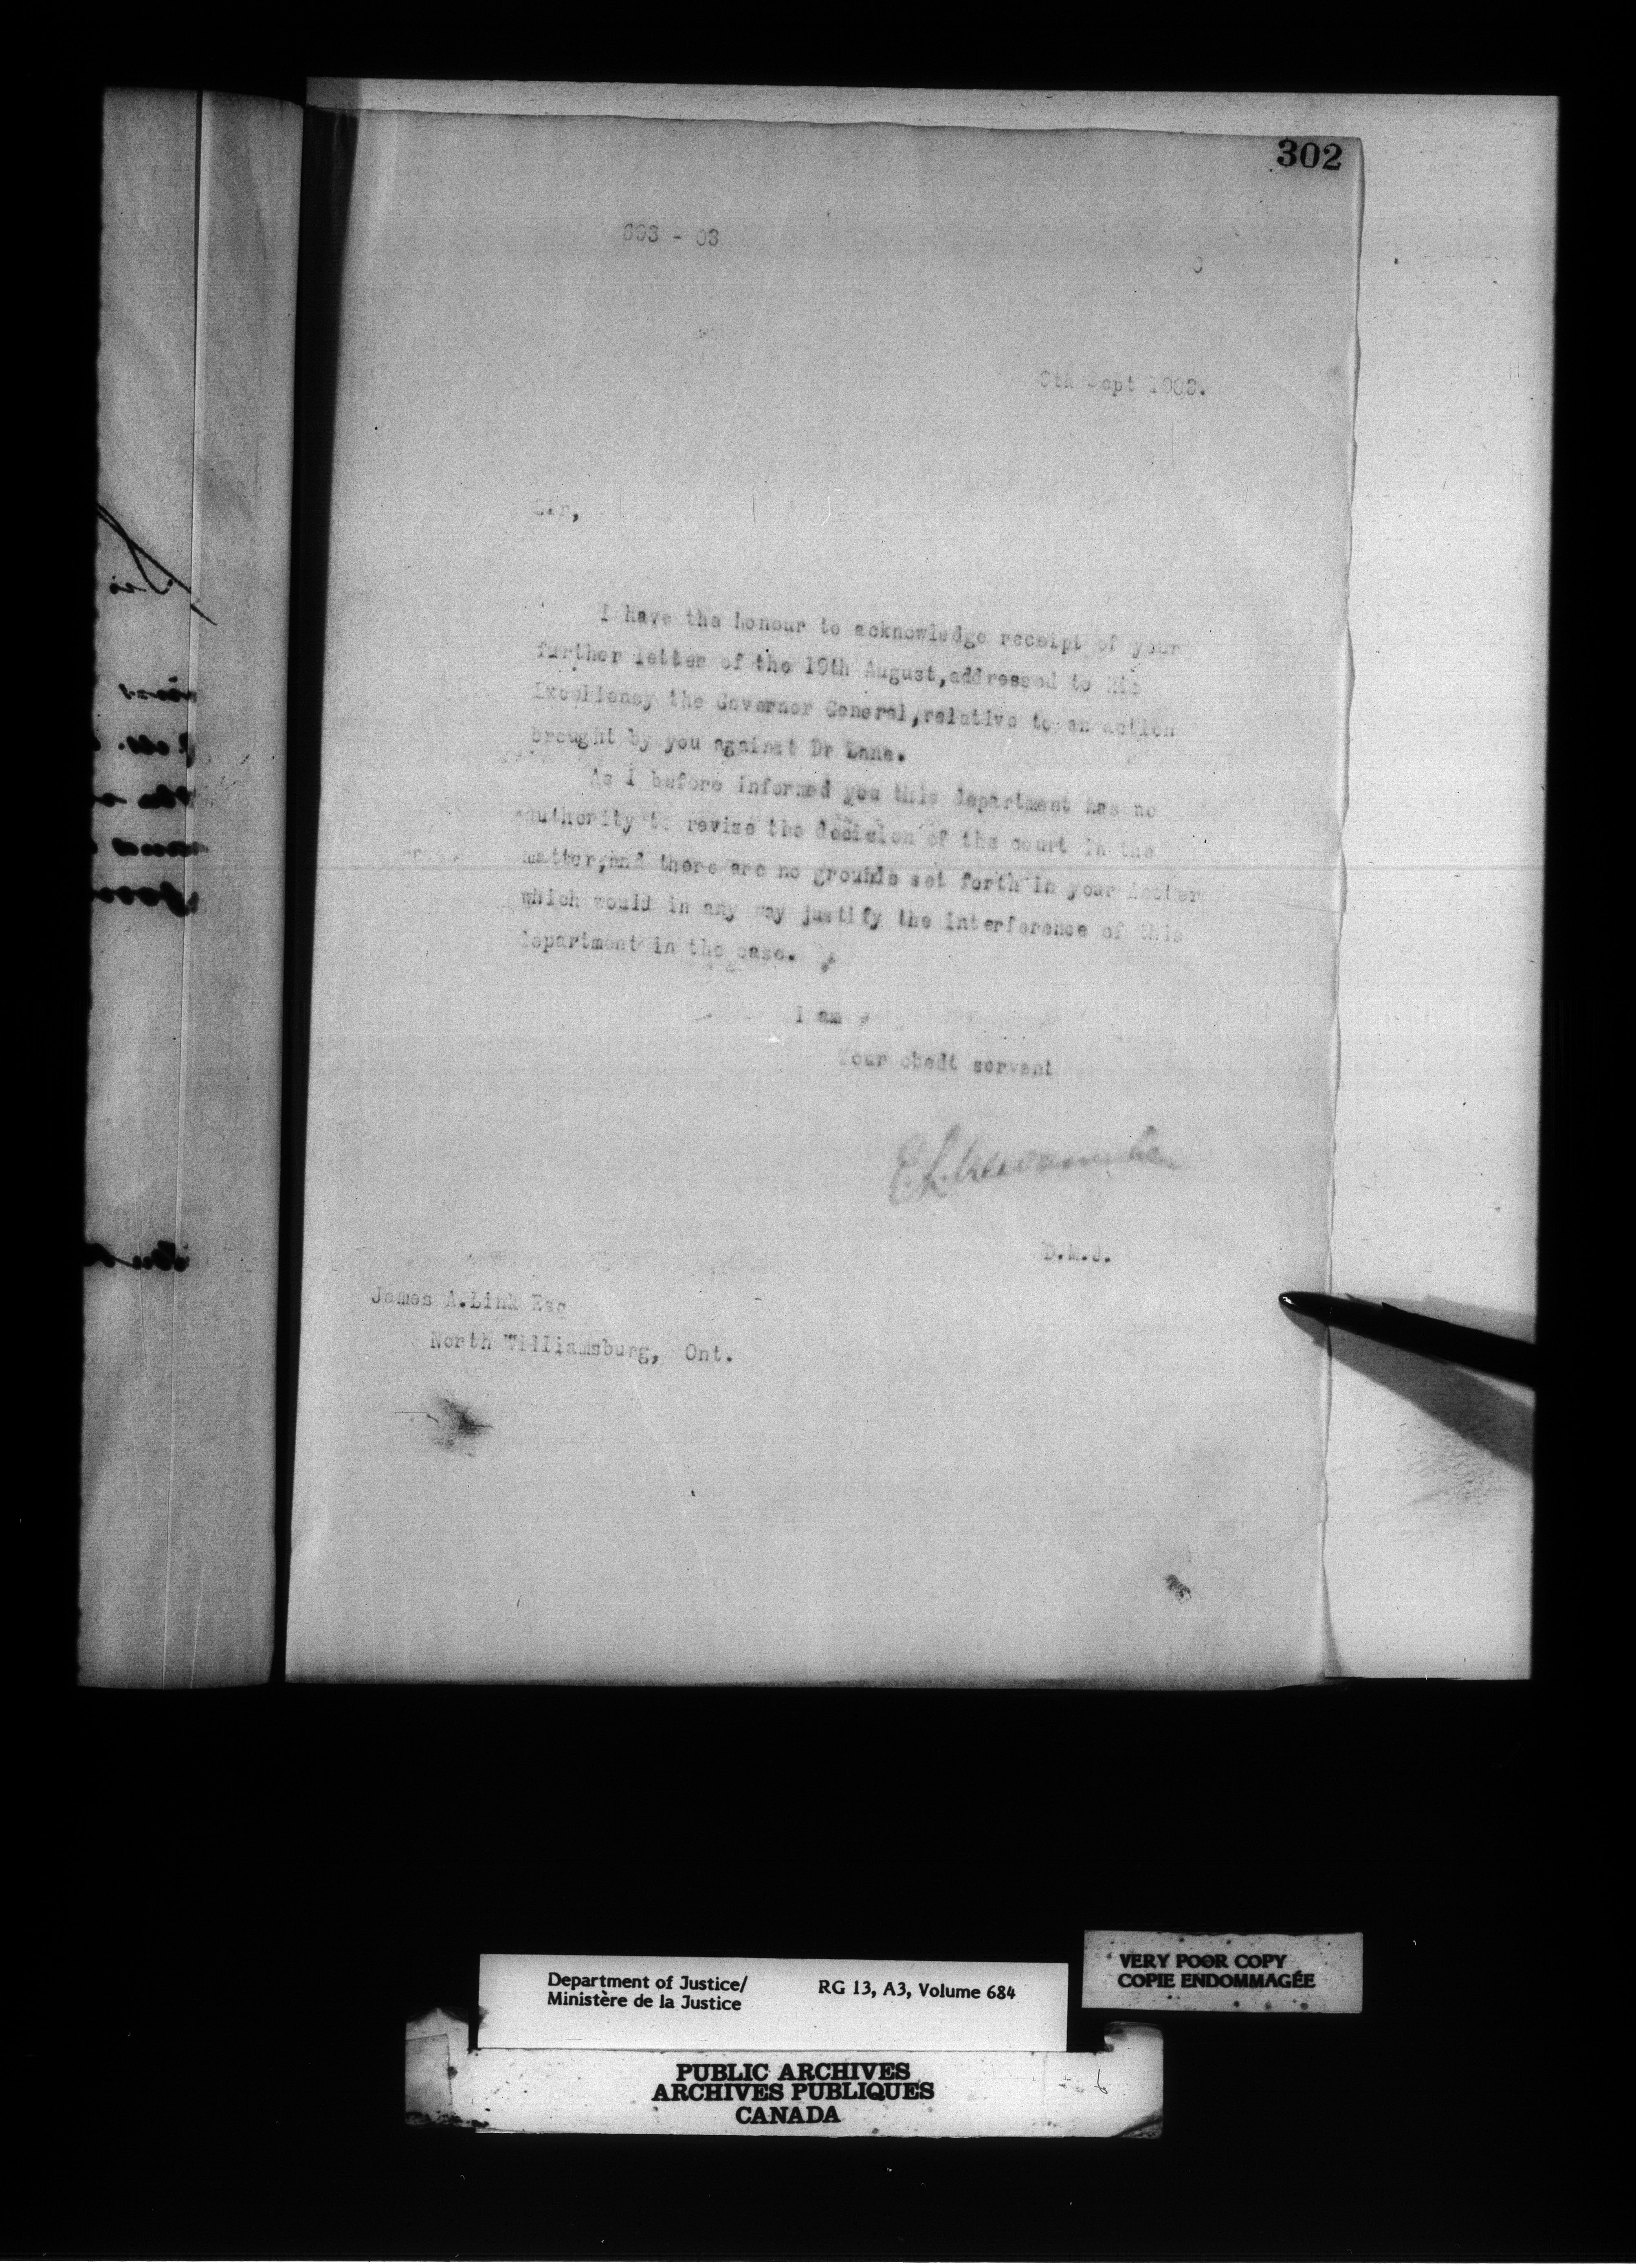 302
693 - 03
Sept 1903.
Sir,
I have the honour to acknowledge receipt of your
further letter of the 19th August, addressed to His
Excellency the Governor General, relative to an action
brought by you against Dr Lane.
As I before informed you this department has no
authority to revise the decision of the court in the
matter, and there are no grounds set forth in your letter
which would in any way justify the interference of this
department in the case.
I am
Your obedt servant
E.L. Newcombe
D.M.J.
James A. Link Esq
North Williamsburg, Ont.
VERY POOR COPY
COPIE ENDOMMAGÉE
Department of Justice/ RG 13, A3, Volume 684
Ministère de la Justice
PUBLIC ARCHIVES
ARCHIVES PUBLIQUES
CANADA